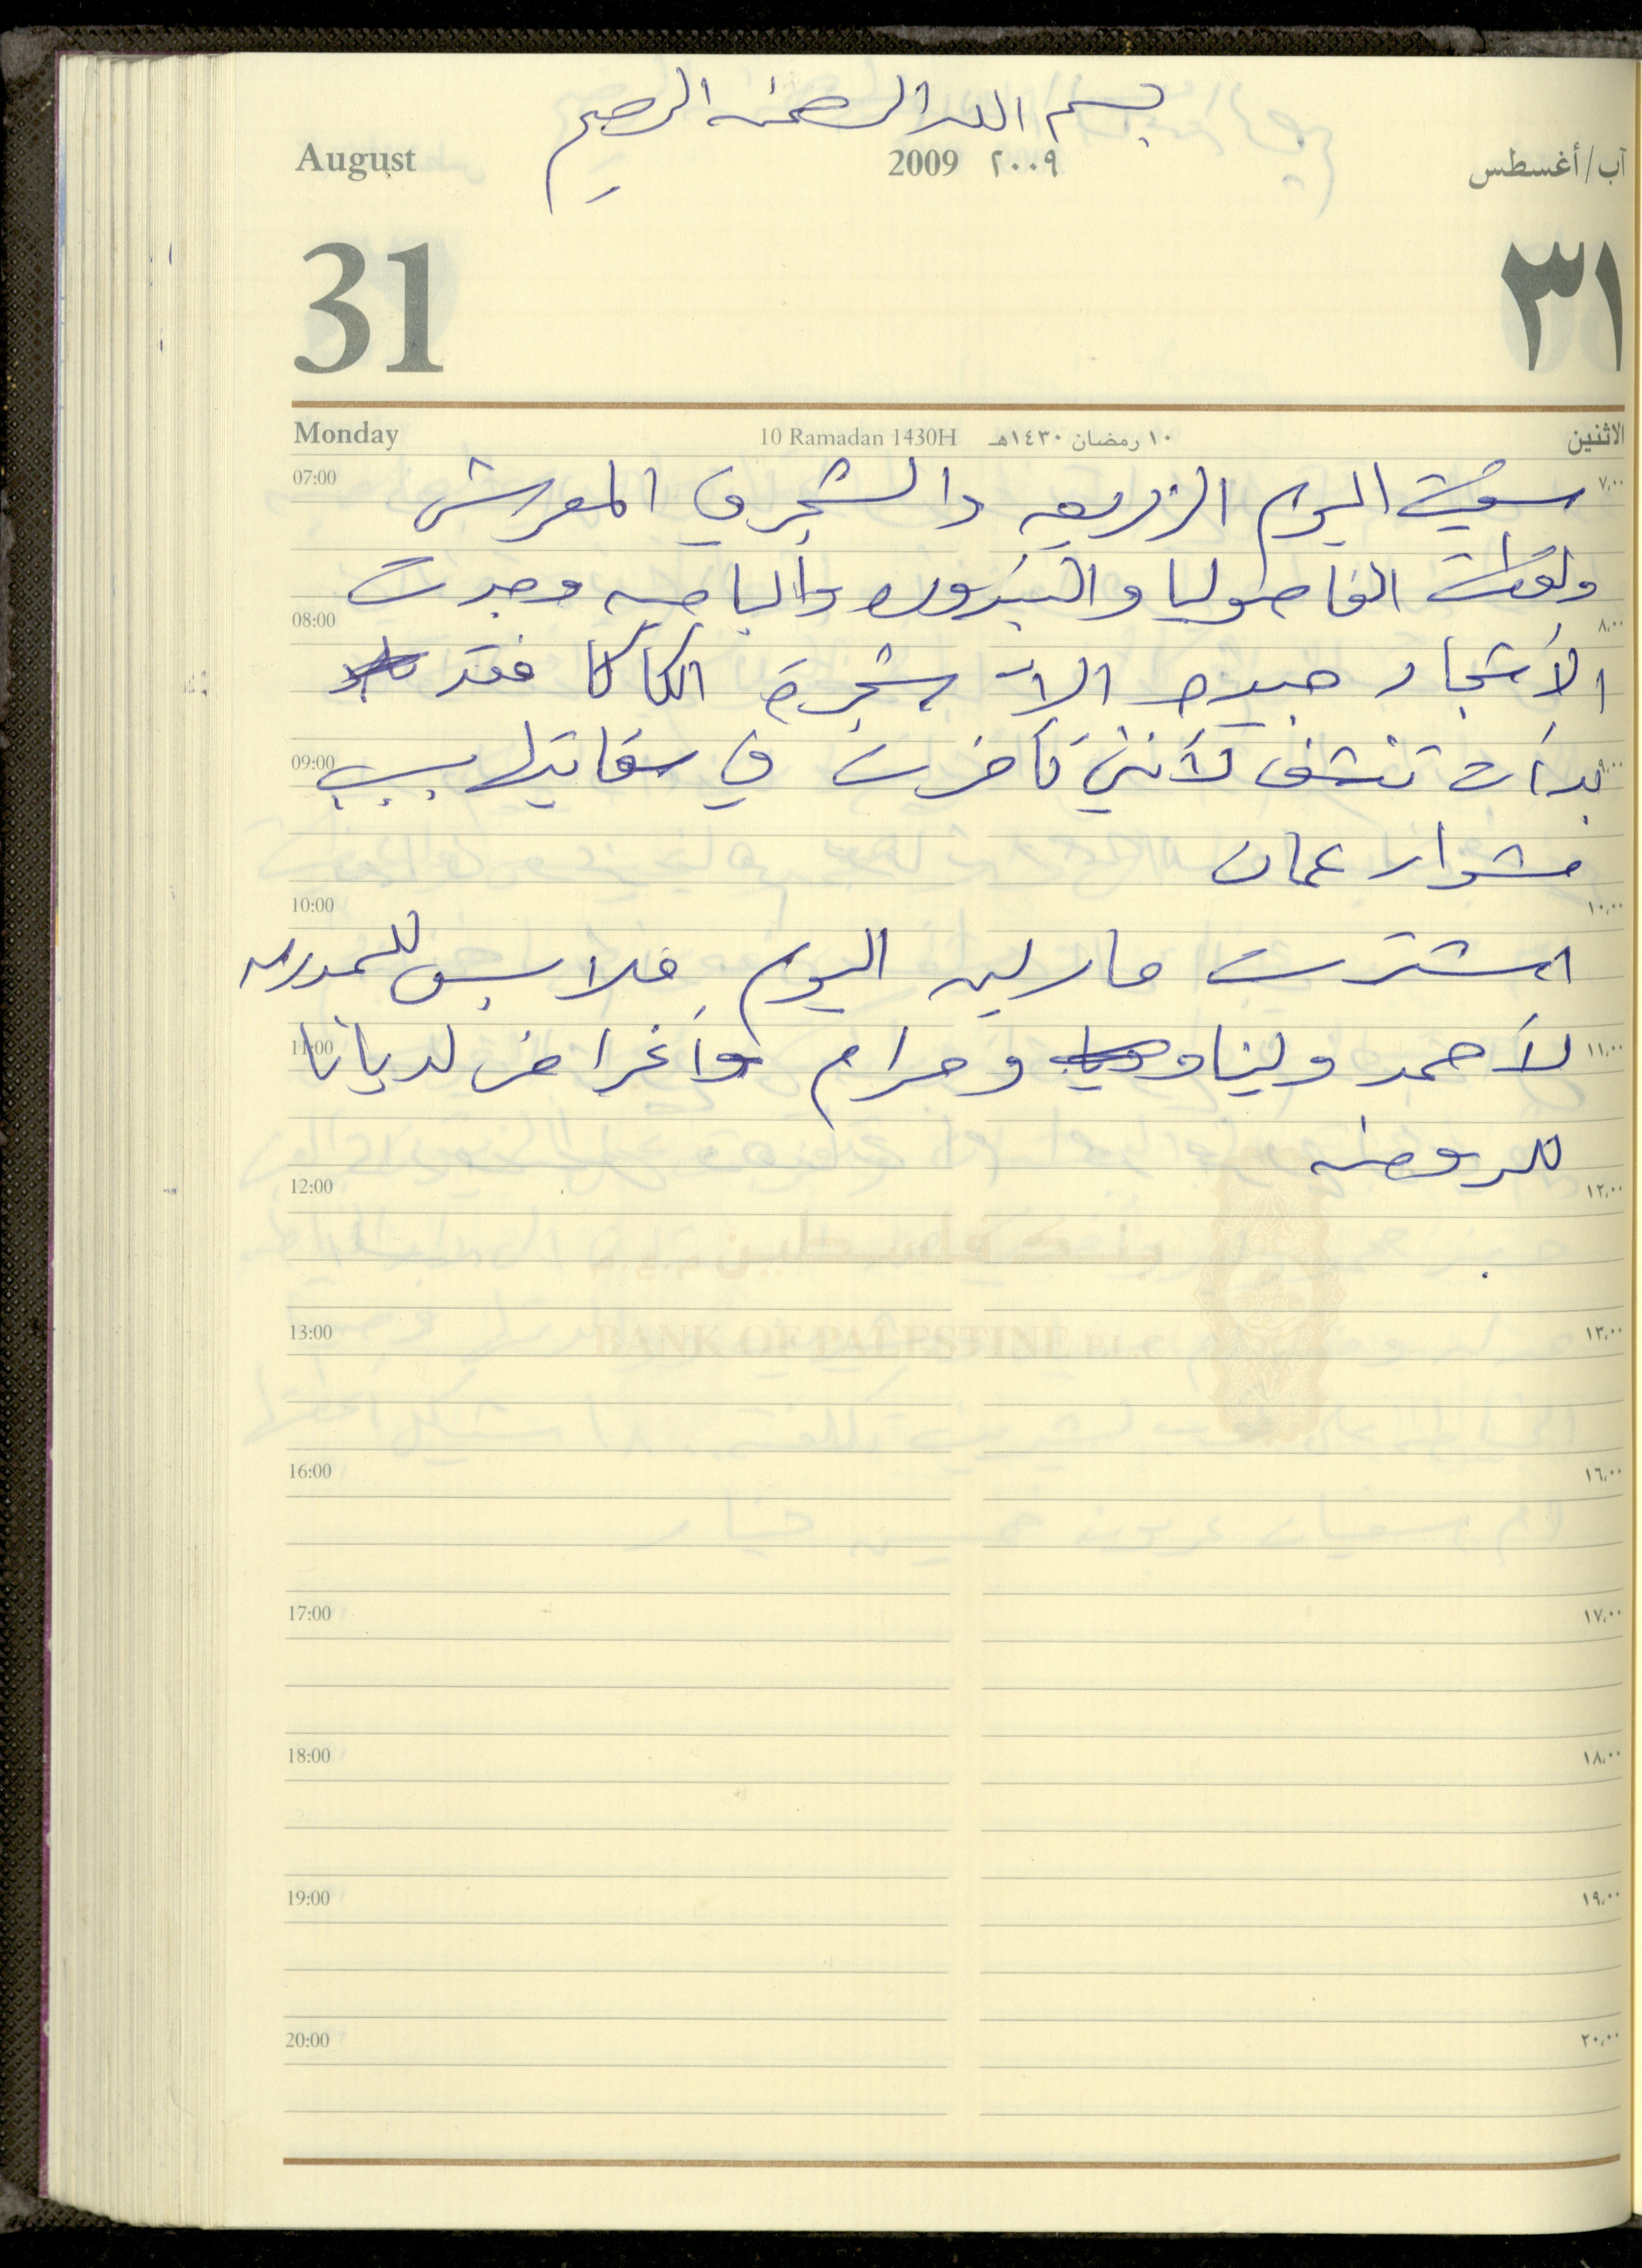 بسم الله الرحمن الرحيم
August 2009 ٢٠٠٩ آب/أغسطس
31 ٣١
Monday 10 Ramadan 1430H ١٠ رمضان ١٤٣٠هـ الاثنين
07:00 سقيت اليوم الزريعه والشجر في المعرش ٧,٠٠
ولقطت الفاصوليا والبندوره والباميه وجدت
08:00 ٨,٠٠
الأشجار جيده الا شجرة الكاكا فقد
09:00 بدأت تنشف لأنني تأخرت في سقايتها بسبب ٩,٠٠
مشوار عمان
10:00 ١٠,٠٠
اشترت مارلين اليوم ملابس للمدرسه
11:00 لأحمد ولينا ومرام وأغراض لديانا ١١,٠٠
للروضه
12:00 ١٢,٠٠
بنك فلسطين
13:00 BANK OF PALESTINE P.L.C ١٣,٠٠
16:00 ١٦,٠٠
17:00 ١٧,٠٠
18:00 ١٨,٠٠
19:00 ١٩,٠٠
20:00 ٢٠,٠٠